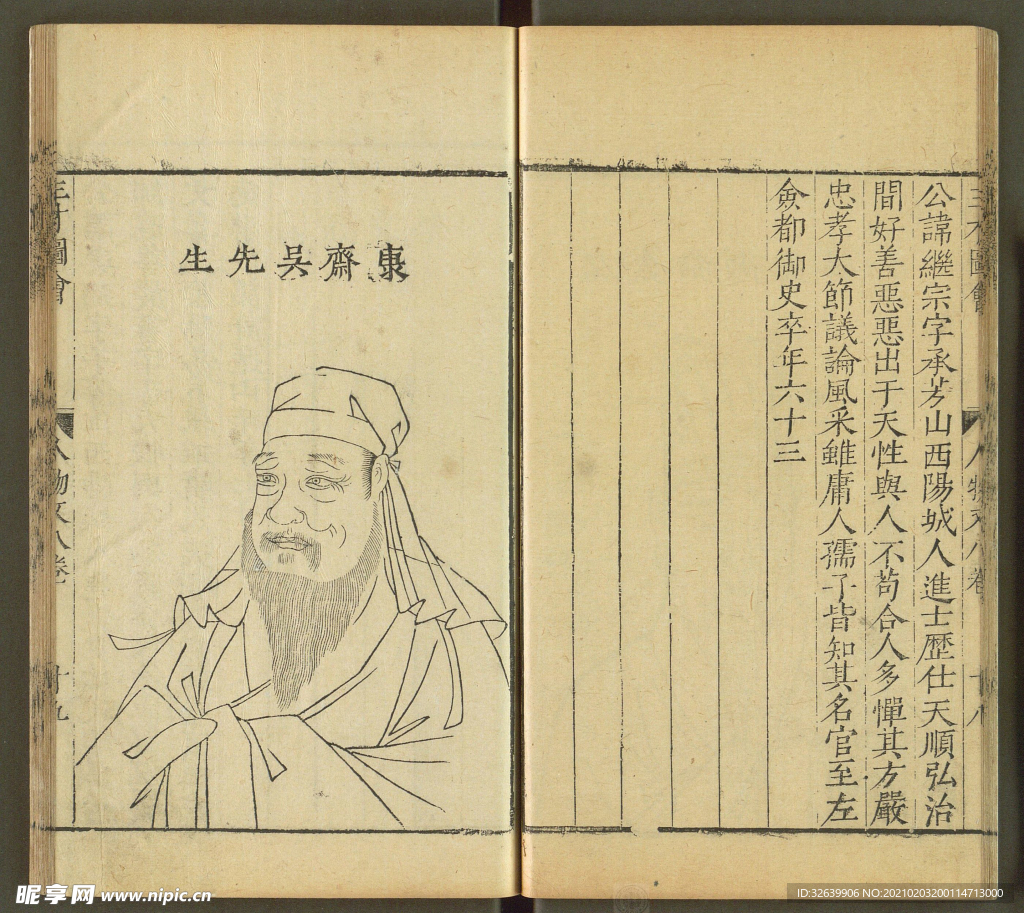 三才圖會
人物又八卷
十八
公諱繼宗字承芳山西陽城人進士歷仕天順弘治
間好善惡惡出于天性與人不茍合人多憚其方嚴
忠孝大節議論風采雖庸人孺子皆知其名官至左
僉都御史卒年六十三
康齋吳先生
三才圖會
人物又八卷
十九
昵享网 www.nipic.cn
ID:32639906 NO:20210203200114713000